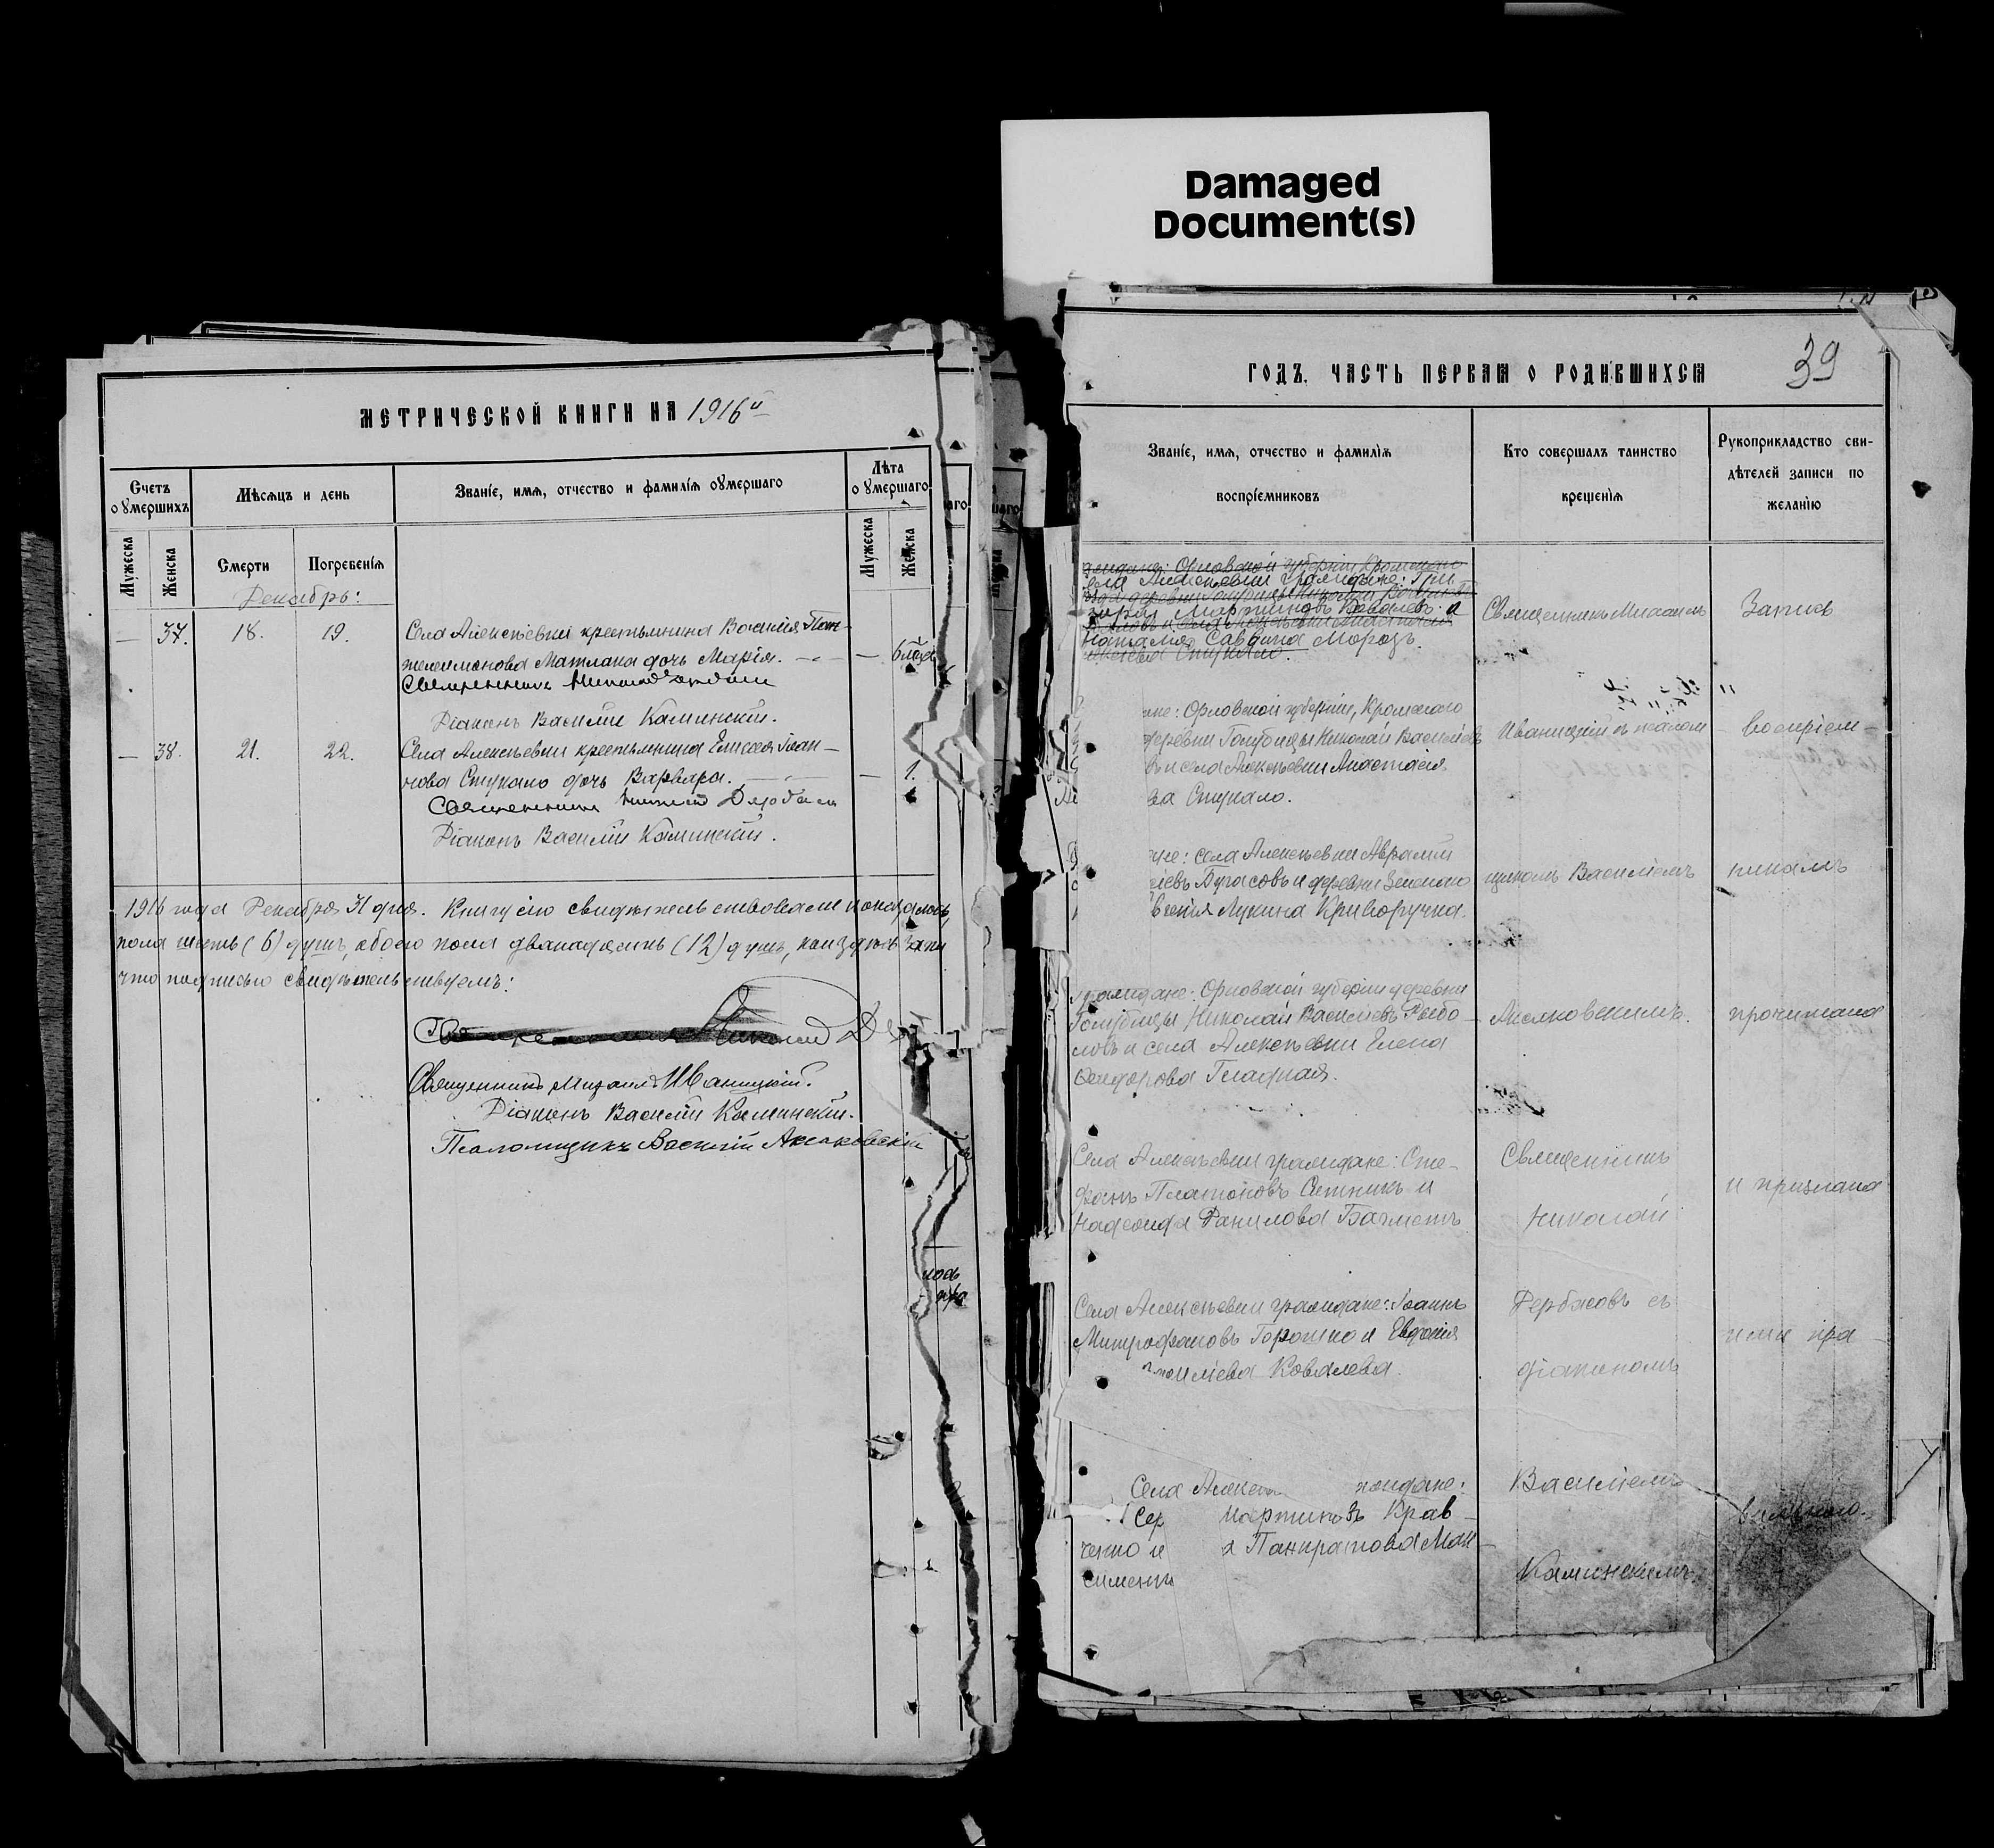 Damaged
Document(s)
МЕТРИЧЕСКОЙ КНИГИ НА 1916й
Счетъ
о умершихъ
Мѣсяцъ и день
Званіе, имя, отчество и фамилія умершаго
Лѣта
о умершаго
Мужеска
Женска
Смерти
Погребенія
Мужеска
Женска
Декабрь:
— 37. 18. 19. Села Алексѣевки крестьянина Василія Пан-
телеимонова Матлака дочь Марія. — —
Священникъ Николай
Діаконъ Василій Каминскій.
— 38. 21. 22. Села Алексѣевки крестьянина Елисея Іоан-
нова Стукало дочь Варвара. — 1.
Священникъ Николай Дербасъ
Діаконъ Василій Каминскій.
1916 года Декабря 31 дня. Книгу сію свидѣтельствовали и оказалось,
пола шесть (6) душъ, обоего пола двѣнадцать (12) душъ,
что подписью свидѣтельствуемъ:
Священникъ Михаилъ Иваницкій.
Діаконъ Василій Каминскій.
Псаломщикъ Василій Аксаковскій
ГОДЪ, ЧАСТЬ ПЕРВАЯ О РОДИВШИХСЯ
39
Званіе, имя, отчество и фамилія
воспріемниковъ
Кто совершалъ таинство
крещенія
Рукоприкладство сви-
дѣтелей записи по
желанію
граждане: Орловской губерніи Кромскаго
Села Алексѣевки граждане: Гри-
горій Мартиновъ Ковалевъ и
Наталія Саввина Морозъ.
Стукало.
Священникъ Михаилъ
Запись
не: Орловской губерніи, Кромскаго
деревни Голубицы Николай Василіевъ
и села Алексѣевки Анастасія
ва Стукало.
Иваницкій съ псалом-
воспріем-
не: села Алексѣевки Авраамъ
іевъ Бугасовъ и деревни Зеленаго
Лукина Криворучка.
щикомъ Василіемъ
никамъ
граждане: Орловской губерніи деревни
Голубицы Николай Василіевъ Рыбо-
ловъ и села Алексѣевки Елена
Сидорова Гладкая.
Аксаковскимъ.
прочитана
Села Алексѣевки граждане: Сте-
фанъ Платоновъ Ситникъ и
Надежда Данилова Багметъ
Священникъ
Николай
и признана
Села Алексѣевки граждане: Іоаннъ
Митрофановъ Горошко и Евдокія
Ковалева.
Дербасовъ съ
діакономъ
ими пра-
Села Алексѣ ждане:
Сер Мартиновъ Крав-
ченко и я Панкратова Мак-
сименко
Василіемъ
Каминскимъ.
вильною.